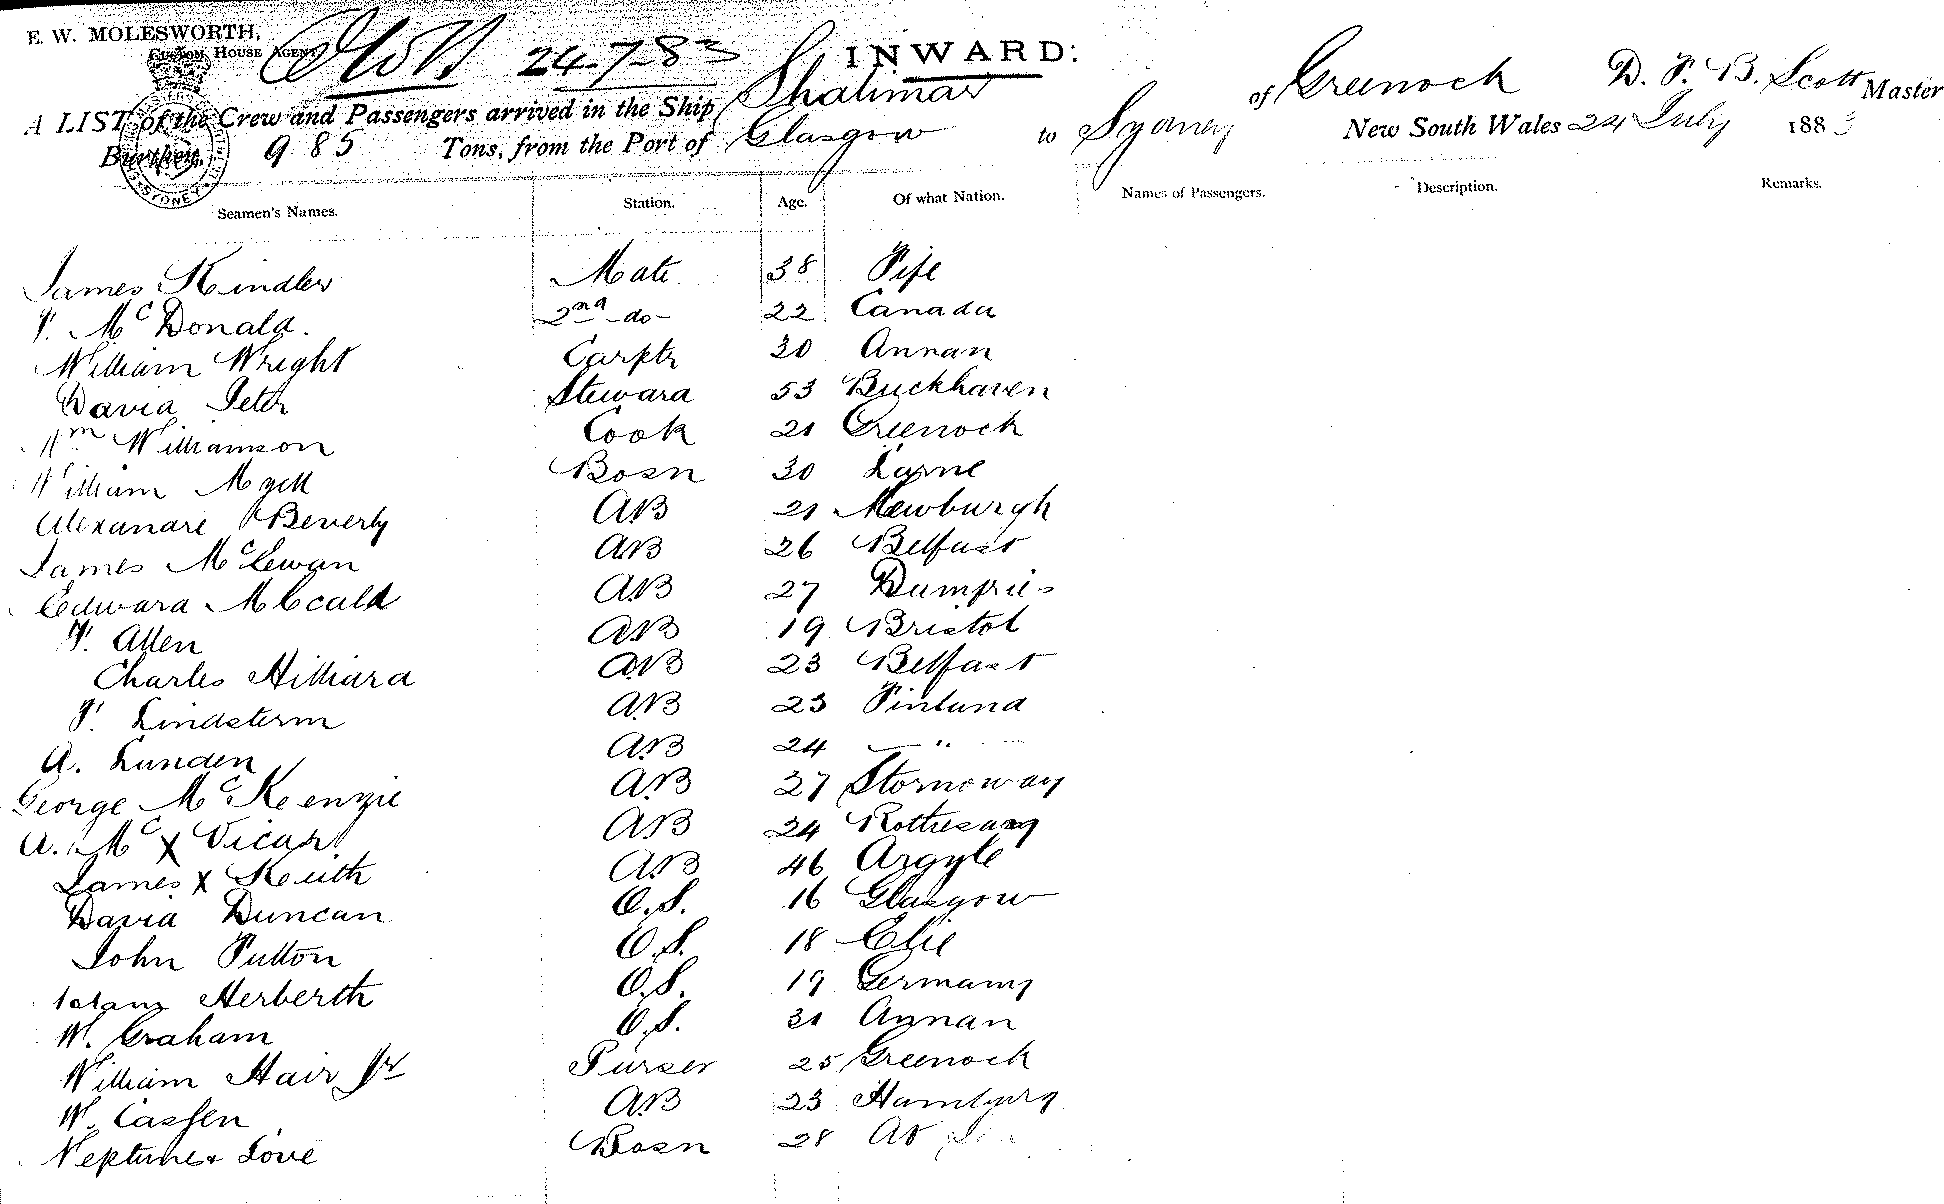 E. W. MOLESWORTH,
CUSTOM HOUSE AGENT
24-7-83
INWARD:
A LIST of the Crew and Passengers arrived in the Ship Shalimar of Greenock D. P. B. Scott Master
Burthen, 985 Tons, from the Port of Glasgow to Sydney New South Wales 24 July 1883
Seamen's Names. Station. Age. Of what Nation. Names of Passengers. Description. Remarks.
James Kindler Mate 38 Fife
P. McDonald. 2nd -do- 22 Canada
William Wright Carptr 30 Annan
David Peter Steward 53 Buckhaven
Wm Williamson Cook 21 Greenock
William Bosn 30 Larne
Alexandre Beverly AB 21 Newburgh
James McEwan AB 26 Belfast
Edward AB 27 Dumfries
Allen AB 19 Bristol
Charles Hilliard AB 23 Belfast
F. Lindsterm AB 23 Finland
A. Lunden AB 24 — " —
George McKenzie AB 27 Stornoway
A. Mc X Vicar AB 24 Rothesay
James X Keith AB 46 Argyle
David Duncan O.S. 16 Glasgow
John Fulton O.S. 18 Elie
Herberth O.S. 19 Germany
W. Graham O.S. 31 Annan
William Hair Jr Purser 25 Greenock
W. Cassen AB 23 Hamburg
Neptune Love Bosn 28 At Sea